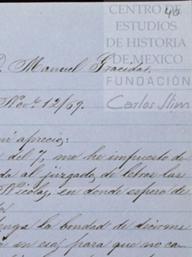 CENTRO DE
ESTUDIOS
DE HISTORIA
DE MEXICO
FUNDACIÓN
Carlos Slim
40
D. Manuel Gracida,
Nov.e 12/69.
mi aprecio;
del 7, me he impuesto de
da al juzgado de letras las
Nicolas, en donde espero de
tenga la bondad de decirme
en esa, para que no ca